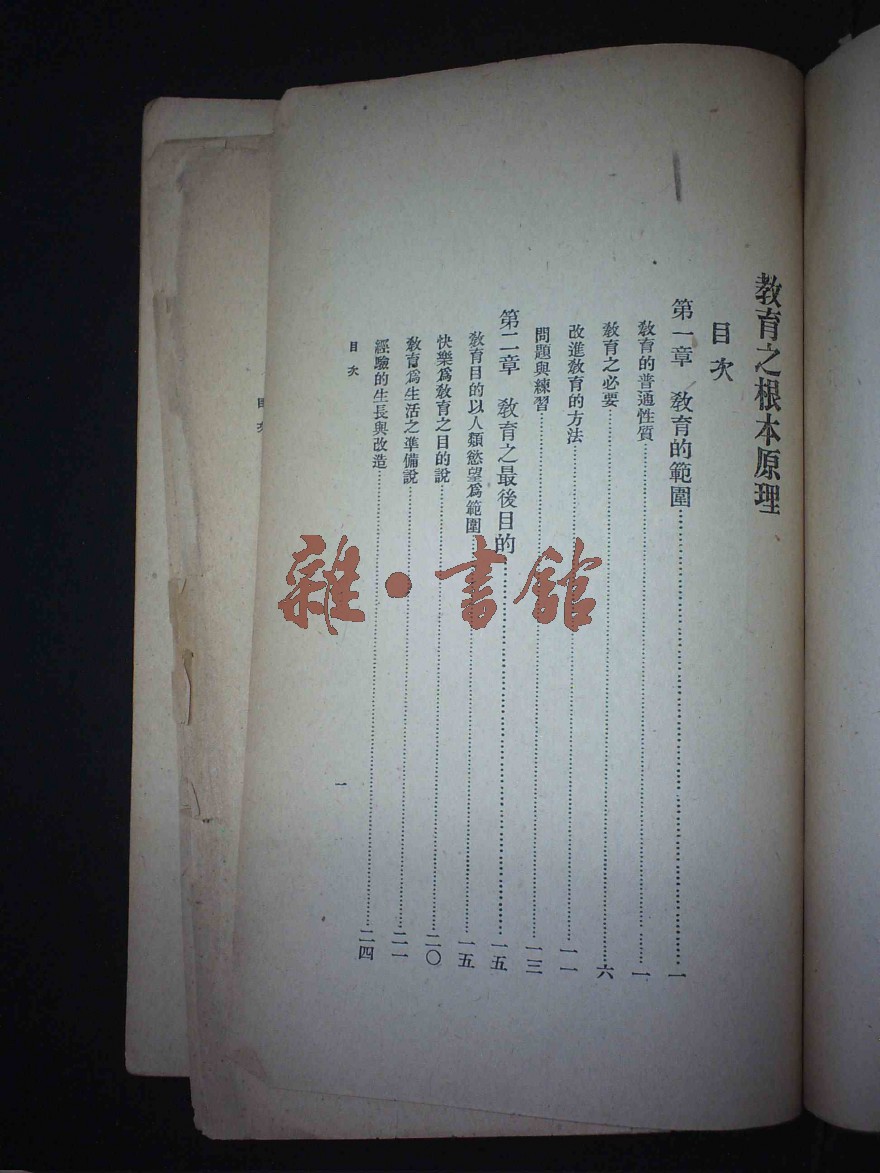 教育之根本原理
目次
第一章　教育的範圍……一
教育的普通性質……一
教育之必要……六
改進教育的方法……一一
問題與練習……一三
第二章　教育之最後目的……一五
教育目的以人類慾望爲範圍……一五
快樂爲教育之目的說……二〇
教育爲生活之準備說……二一
經驗的生長與改造……二四
目次
一
目次
雜·書館